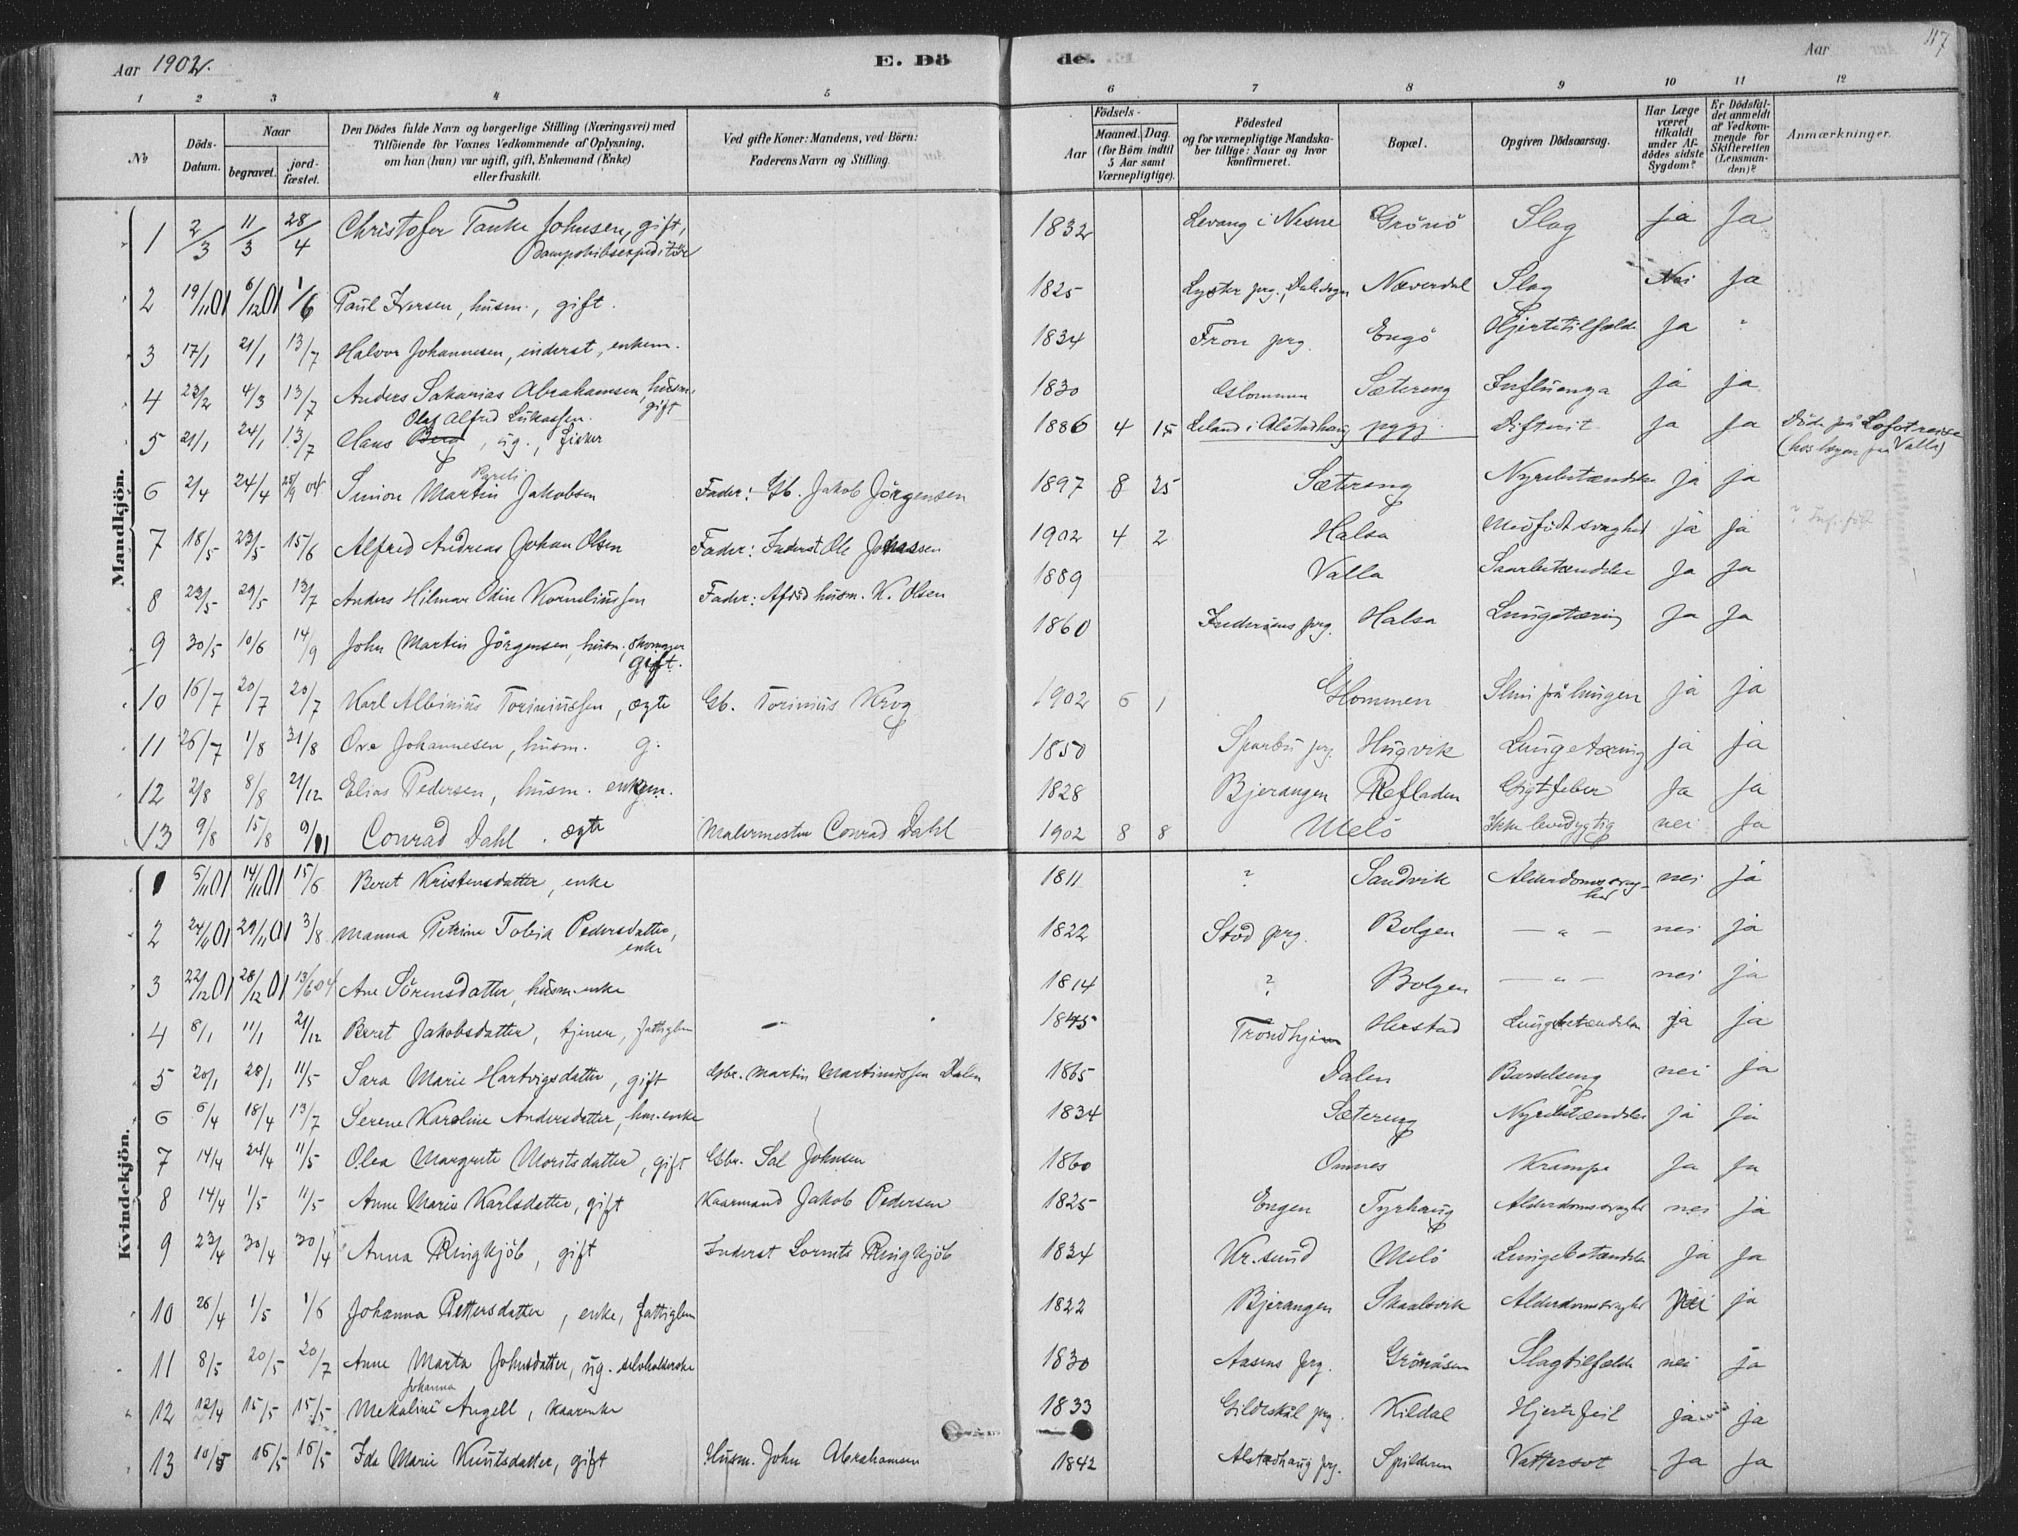 Aar 1902.
E. Dö
de.
Aar
117
1 2 3 4 5 6 7 8 9 10 11 12
No
Döds-Datum.
Naar
begravet.
jord-fæstet.
Den Dödes fulde Navn og borgerlige Stilling (Næringsvei) med
Tilföiende for Voxnes Vedkommende af Oplysning,
om han (hun) var ugift, gift, Enkemand (Enke)
eller fraskilt.
Ved gifte Koner: Mandens, ved Börn:
Faderens Navn og Stilling.
Födsels-
Aar
Maaned. Dag.
(for Börn indtil
5 Aar samt
Værnepligtige).
Födested
og for værnepligtige Mandska-
ber tillige: Naar og hvor
konfirmeret.
Bopæl.
Opgiven Dödsaarsag.
Har Læge
været
tilkaldt
under Af-
dödes sidste
Sygdom?
Er Dödsfal-
det anmeldt
af Vedkom-
mende for
Skifteretten
(Lensman-
den)?
Anmærkninger.
Mandkjön.
1 2/3 11/3 28/4 Christofer Tanke Johnsen, gift, Dampskibsexpeditör 1832 Levang i Nesne Grönö Slag ja Ja
2 19/11 01 6/12 01 1/6 Paul Iversen, husm., gift. 1825 Lyster prg., Dale sogn Næverdal Slag Nei Ja
3 17/1 21/1 13/7 Halvor Johannesen, inderst, enkem. 1834 Fron prg. Engö Hjertetilfælde Ja "
4 22/2 4/3 13/7 Anders Sakarias Abrahamsen, husm. gift 1830 Glommen Sætereng Influenza ja ja
5 21/1 24/1 13/7 Claus Berg, Olaf Alfred Lukassen. ug., fisker 1886 4 15 Leland i Alstadhaug Difterit ja Ja Döde på Lofotreise
6 2/4 24/4 25/9 04 Simon Martin Jakobsen Fader: Gb. Jakob Jörgensen 1897 8 25 Sætereng Nyrebetændelse ja ja
7 18/5 23/5 15/6 Alfred Andreas Johan Olsen Fader: Inderst Ole Johassen 1902 4 2 Halsa Medfödt svaghed ja ja
8 23/5 29/5 13/7 Anders Hilmar Odin Korneliussen Fader: Afdöd husm. K. Olsen 1889 Valla Saarbetændelse Ja Ja
9 30/5 10/6 14/9 John Martin Jörgensen, husm., skomager gift. 1860 Inderöens prg. Halsa Lungetæring Ja Ja
10 16/7 20/7 20/7 Karl Albinius Toriniussen, ægte Gb. Torinius Krog 1902 6 1 Glommen Slim på lungen ja ja
11 26/7 1/8 31/8 Ove Johannesen, husm. g. 1850 Sparbu prg. Hugvik Lungetæring ja ja
12 2/8 8/8 21/12 Elias Pedersen, husm. enkem. 1828 Bjerangen Refladen Gigtfeber Ja ja
13 9/8 15/8 9/11 Conrad Dahl. ægte Malermester Conrad Dahl 1902 8 8 Melö Ikke levedygtig nei Ja
Kvindekjön.
1 5/11 01 14/11 01 15/6 Beret Kristensdatter, enke 1811 ? Sandvik Alderdomssvaghed nei ja
2 24/11 01 29/11 01 3/8 Manna Petrine Tobia Pedersdatter, enke 1822 Stod prg. Bolgen — " — nei ja
3 22/12 01 28/12 01 13/6 04 Ane Sörensdatter, husm.enke 1814 ? Bolgen — " — nei ja
4 8/1 11/1 21/12 Beret Jakobsdatter, tjener, fattiglem — 1845 Trondhjem Herstad Lungebetændelse ja ja
5 20/1 28/1 11/5 Sara Marie Hartvigsdatter, gift Gbr. Martin Martinussen Dalen 1865 Dalen Barselseng nei ja
6 6/4 18/4 13/7 Serene Karoline Andersdatter, hus.enke 1834 Sætereng Nyrebetændelse ja ja
7 14/4 24/4 11/5 Olea Margrete Moritsdatter, gift Gbr. Sal Johnsen 1860 Omnes Krampe Ja Ja
8 14/4 1/5 11/5 Anne Marie Karlsdatter, gift Kaarmand Jakob Pedersen 1825 Engen Tyrhaug Alderdomssvaghed nei ja
9 23/4 30/4 30/4 Anna Ringkjöb, gift Inderst Lornts Ringkjöb 1834 Kr.sund Melö Lungebetændelse ja Ja
10 26/4 1/5 1/6 Johanna Pettersdatter, enke, fattiglem 1822 Bjerangen Skaalsvik Alderdomssvaghed Nei ja
11 8/5 20/5 20/7 Anne Marta Johnsdatter, ug. selvholderske 1830 Aasens prg. Grönåsen Slagtilfælde nei ja
12 12/4 15/5 15/5 Mekaline Johanna Angell, kaarenke 1833 Gildeskål prg. Kildal Hjertefeil ja ja
13 10/5 16/5 16/5 Ida Marie Knutsdatter, gift Husm. John Abrahamsen 1842 Alstadhaug prg. Spildren Vattersot Ja Ja